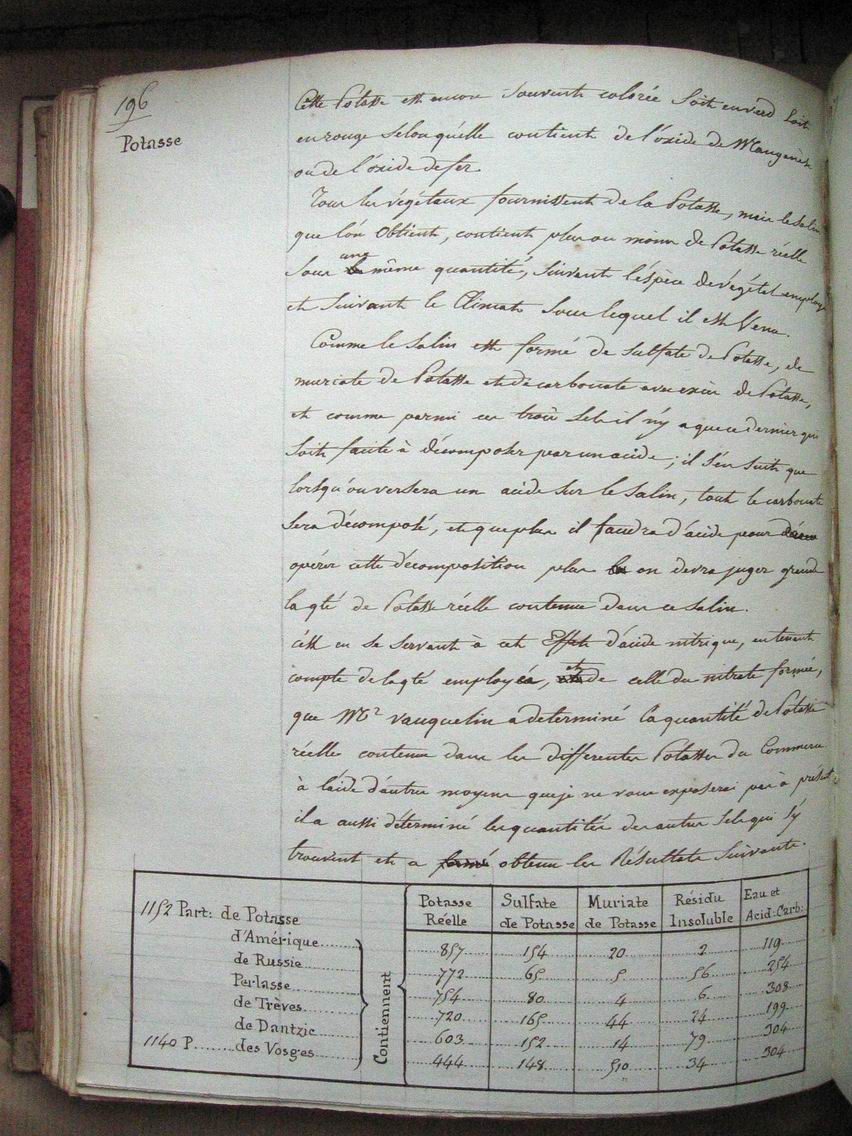 196
Potasse
Cette Potasse est encore souvent colorée soit en verd soit
en rouge selon qu'elle contient de l'oxide de Manganèse
ou de l'oxide de fer.
Tous les végétaux fournissent de la Potasse, mais le salin
que l'on Obtient, contient plus ou moins de Potasse réelle
sous une même quantité, suivant l'espèce de végétal employé
et suivant le Climat sous lequel il est Venu.
Comme le salin est formé de sulfate de Potasse, de
muriate de Potasse et de carbonate avec excès de Potasse,
et comme parmi ces trois sels il n'y a que ce dernier qui
soit facile à décomposer par un acide; il s'en suit que
lorsqu'on versera un acide sur le salin, tout le carbonate
sera décomposé, et que plus il faudra d'acide pour
opérer cette décomposition plus on devra juger grande
la qté de Potasse réelle contenue dans ce salin.
c'est en se servant à cet Effet d'acide nitrique, en tenant
compte de la qté employée, et de celle du nitrate formée,
que Mr Vauquelin a determiné la quantité de Potasse
réelle contenue dans les differentes Potasses du Commerce
à l'aide d'autres moyens que je ne vous exposerai pas à présent
il a aussi déterminé les quantités des autres sels qui s'y
trouvent et a obtenu les Résultats suivants.
1152 Part: de Potasse Contiennent Potasse Réelle Sulfate de Potasse Muriate de Potasse Résidu Insoluble Eau et Acid: Carb:
d'Amérique 857 154 20 2 119
de Russie 772 65 5 56 254
Perlasse 754 80 4 6 308
de Trèves 720 165 44 24 199
de Dantzic 603 152 14 79 304
1140 P. des Vosges 444 148 510 34 304